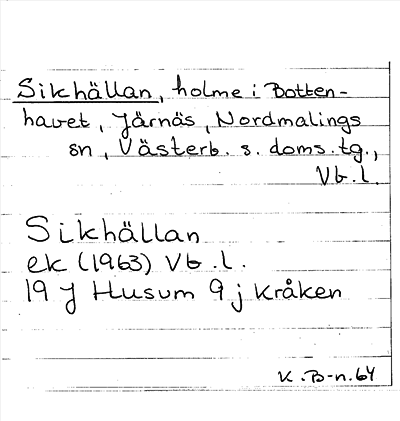 Sikhällan, holme i Botten-
havet, Järnäs, Nordmalings
sn, Västerb. s. doms.tg.,
Vb.l.
Sikhällan
ek (1963) Vb.l.
19 J Husum 9 j Kråken
K.B-n.64